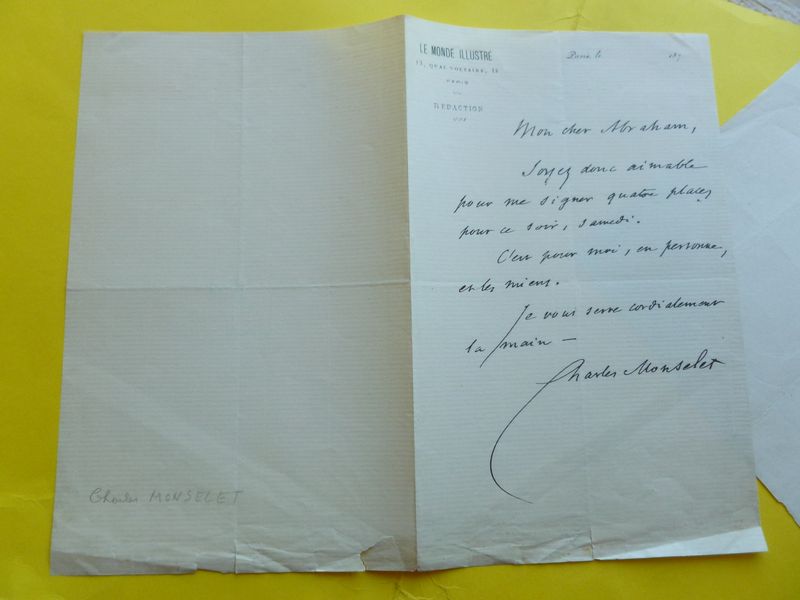 LE MONDE ILLUSTRÉ
13, QUAI VOLTAIRE, 13
PARIS
RÉDACTION
Paris, le 187
Mon cher Abraham,
Soyez donc aimable
pour me signer quatre places
pour ce soir, samedi.
C'est pour moi, en personne,
et les miens.
Je vous serre cordialement
la main —
Charles Monselet
Charles MONSELET